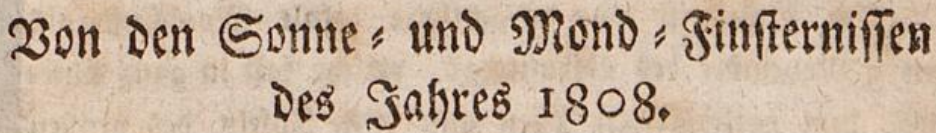 Von den Sonne- und Mond-Finsternissen
des Jahres 1808.